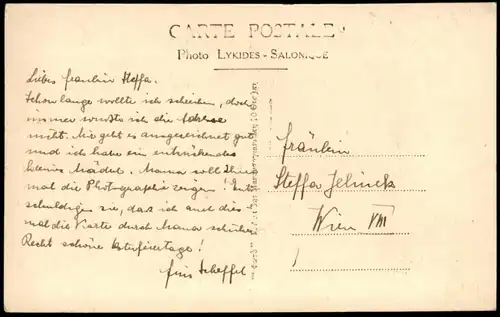 CARTE POSTALE
Photo LYKIDES - SALONIQUE
Liebes Fräulein Steffa.
Schon lange wollte ich schreiben, doch
immer wusste ich die Adresse
nicht. Mir geht es ausgezeichnet gut
und ich habe ein entzückendes
kleines Mädel. Mama soll Ihnen
mal die Photographie zeigen! Ent-
schuldigen sie, das ich auch dies-
mal die Karte durch Mama schicke.
Recht schöne Osterfeiertage!
Scheffel
Fräulein
Steffa Jelinek
Wien VIII